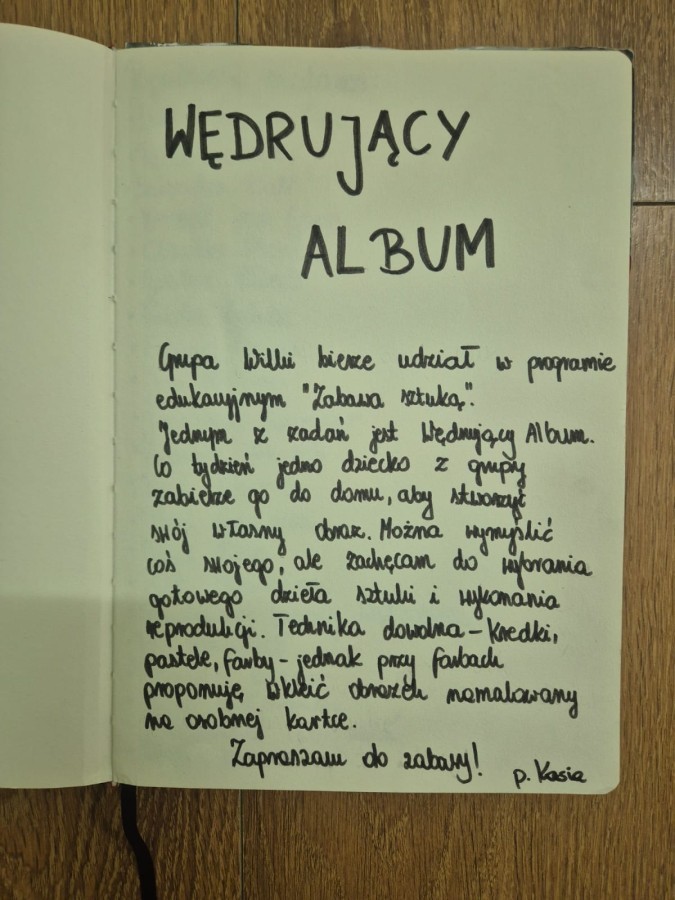 WĘDRUJĄCY
ALBUM
Grupa Wilki bierze udział w programie
edukacyjnym "Zabawa sztuką".
Jednym z zadań jest Wędrujący Album.
Co tydzień jedno dziecko z grupy
zabierze go do domu, aby stworzyć
swój własny obraz. Można wymyślić
coś swojego, ale zachęcam do wybrania
gotowego dzieła sztuki i wykonania
reprodukcji. Technika dowolna - kredki,
pastele, farby - jednak przy farbach
proponuję wkleić obrazek namalowany
na osobnej kartce.
Zapraszam do zabawy!
p. Kasia